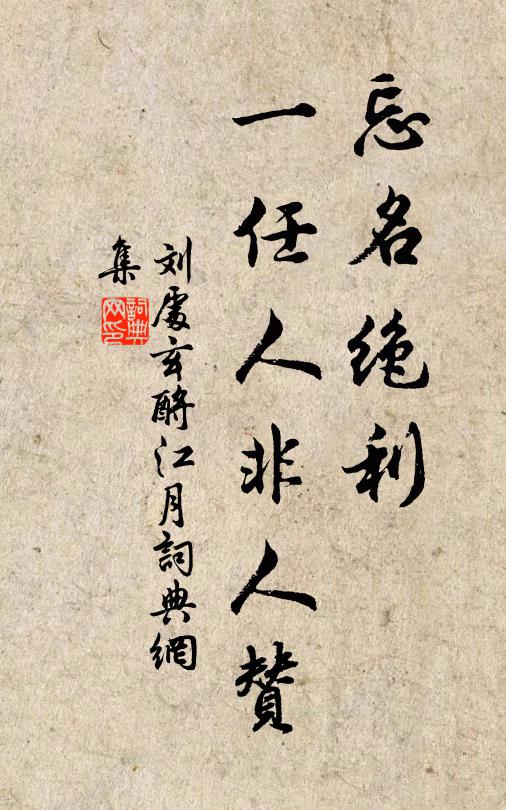 忘名绝利
一任人非人赞
刘處玄酹江月詞典網
集
詞典网印